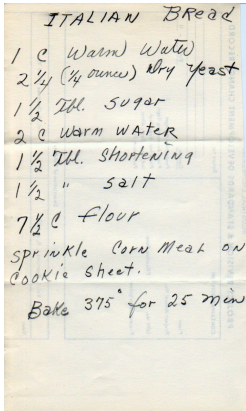 ITALIAN Bread
1 C Warm Water
2 1/4 (1/4 ounce) Dry Yeast
1 1/2 Tbl. Sugar
2 C Warm Water
1 1/2 Tbl. Shortening
1 1/2 " Salt
7 1/2 C flour
Sprinkle Corn Meal on
Cookie Sheet.
Bake 375° for 25 min